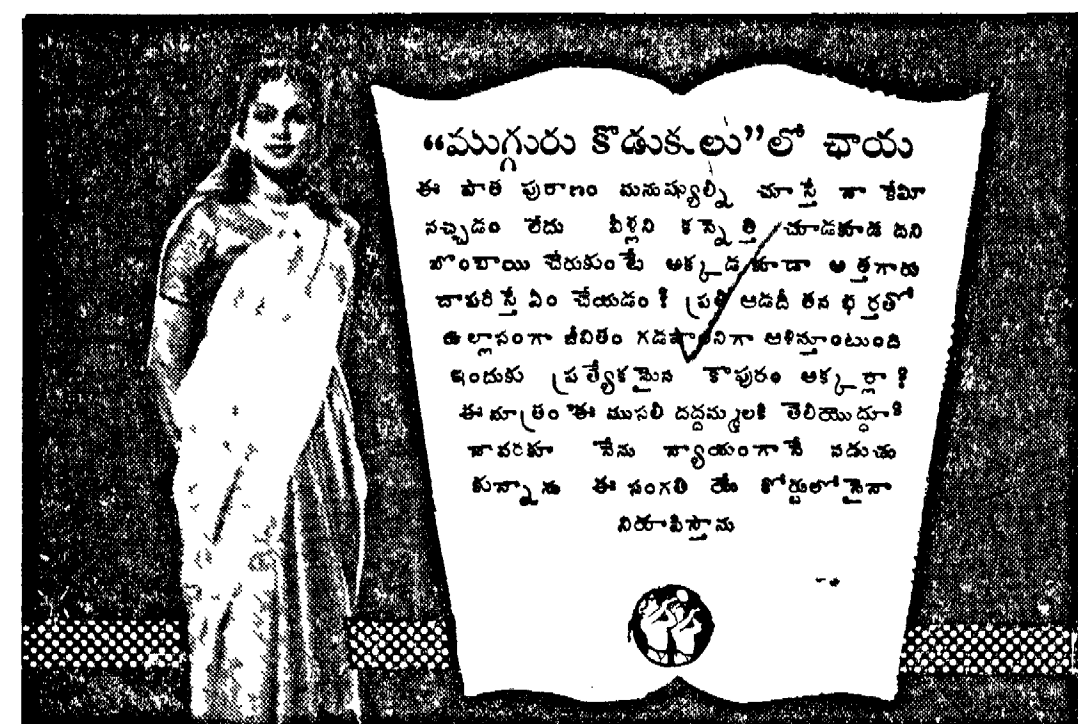 “ముగ్గురు కొడుకులు”లో ఛాయ
ఈ పాత పురాణం మనుష్యుల్ని చూస్తే నా కేమీ
నచ్చడం లేదు వీళ్లని కన్నెత్తి చూడకూడదని
బొంబాయి చేరుకుంటే అక్కడకూడా అత్తగారు
దాపరిస్తే ఏం చేయడం? ప్రతీ ఆడదీ తన భర్తతో
ఉల్లాసంగా జీవితం గడపాలనిగా ఆశిస్తూంటుంది
ఇందుకు ప్రత్యేకమైన కాపురం అక్కర్లా?
ఈమాత్రం ఈ ముసలి దద్దమ్మలకి తెలియొద్దూ?
నావరకూ నేను న్యాయంగానే నడుచు
కున్నాను ఈ సంగతి యే కోర్టులోనైనా
నిరూపిస్తాను